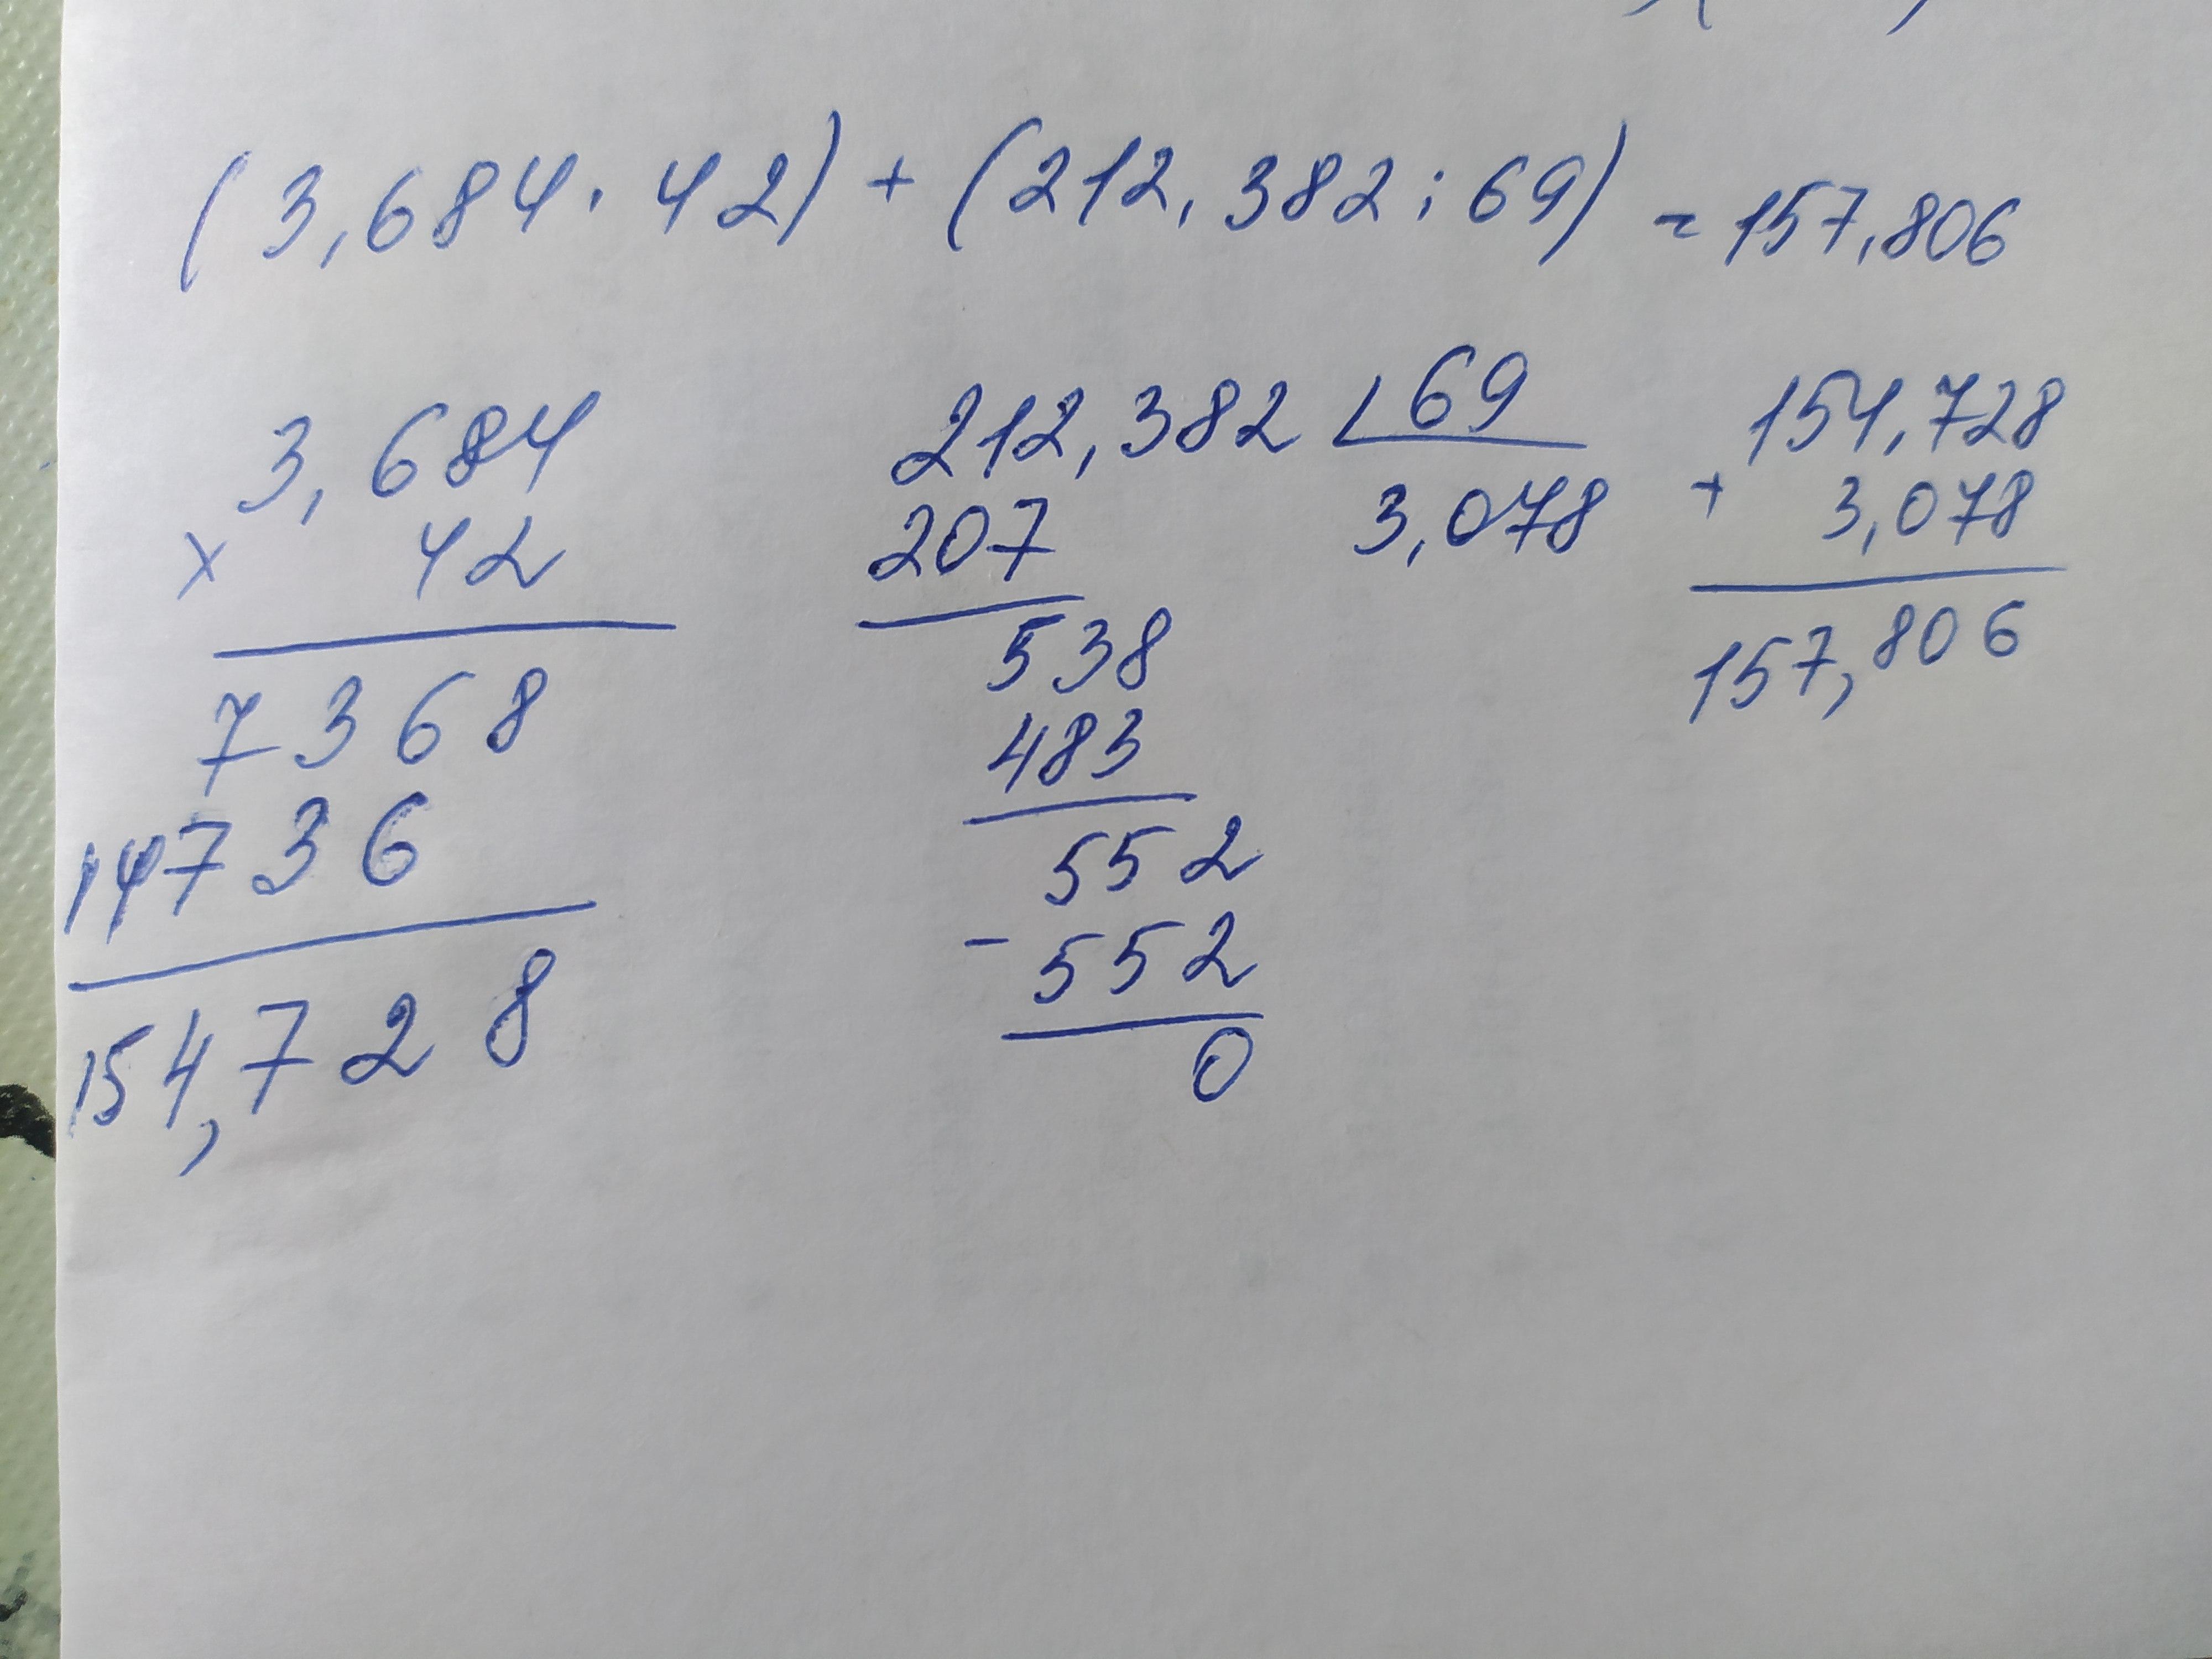 (3,684 · 42) + (212,382 : 69) = 157,806
3,684
× 42
7368
14736
154,728
212,382 69
207 3,078
538
483
552
- 552
0
154,728
+ 3,078
157,806